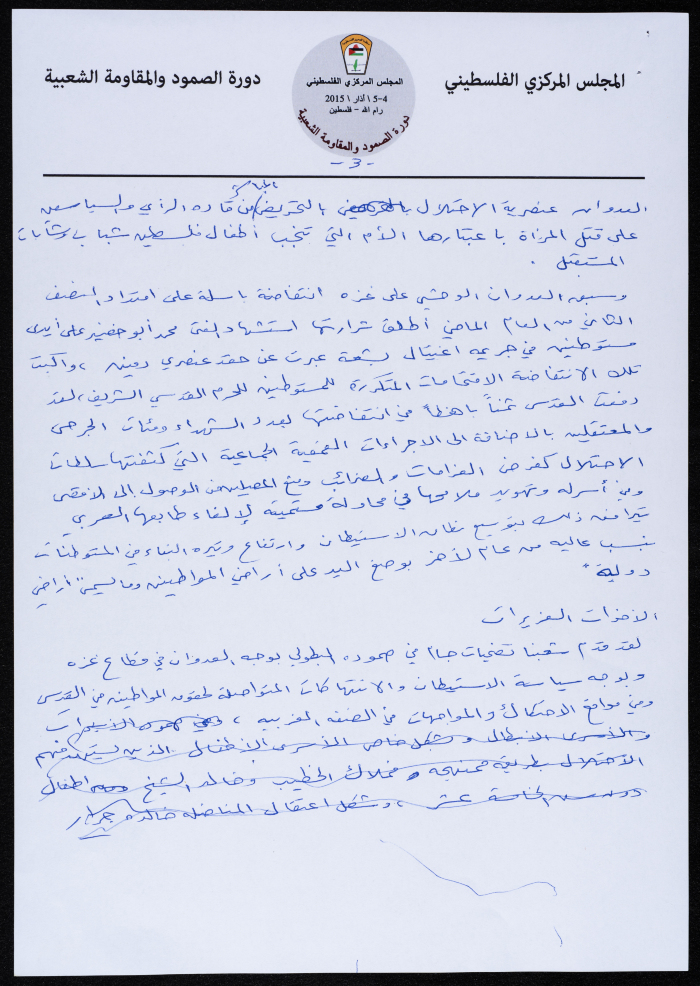 المجلس المركزي الفلسطيني
المجلس المركزي الفلسطيني
4-5 \ آذار \ 2015
رام الله - فلسطين
دورة الصمود والمقاومة الشعبية
دورة الصمود والمقاومة الشعبية
-3-
العدوان عنصرية الاحتلال بالتحريض المباشر من قادة الرأي والسياسيين
على قتل المرأة باعتبارها الأم التي تنجب أطفال فلسطين شباب وشابات
المستقبل .
وسبق العدوان الوحشي على غزه انتفاضة باسلة على امتداد النصف
الثاني من العام الماضي أطلق شرارتها استشهاد الفتى محمد أبو خضير على أيدي
مستوطنين في جريمه اغتيال بشعة عبرت عن حقد عنصري دفين ، واكبت
تلك الانتفاضة الاقتحامات المتكررة للمستوطنين للحرم القدسي الشريف، لقد
دفعت القدس ثمناً باهظاً في انتفاضتها بعدد الشهداء ومئات الجرحى
والمعتقلين بالاضافة الى الاجراءات القمعية الجماعية التي كثفتها سلطات
الاحتلال كفرض الغرامات والضرائب ومنع المصلين من الوصول الى الاقصى
وفي أسرله وتهويد ملامحها في محاولة مستميته لإلغاء طابعها العربي
تترافق ذلك بتوسيع نطاق الاستيطان وارتفاع وتيره البناء في المستوطنات
بنسب عاليه من عام لآخر بوضع اليد على أراضي المواطنين وما يسمى "أراضي
دولة"
الأخوات العزيزات
لقد قدم شعبنا تضحيات جسام في صموده البطولي بوجه العدوان في قطاع غزه
وبوجه سياسة الاستيطان والانتهاكات المتواصلة لحقوق المواطنين في القدس
وفي مواقع الاحتكاك والمواجهات في الضفه الغربيه ، وفي صمود الأسيرات
والأسرى الأبطال وبشكل خاص الأسرى الأطفال الذين يستهدفهم
الاحتلال بطريقه ممنهجه كملاك الخطيب وخالد الشيخ اطفال
دون سن الخامسة عشر ، وشكل اعتقال المناضله خالدة جرار